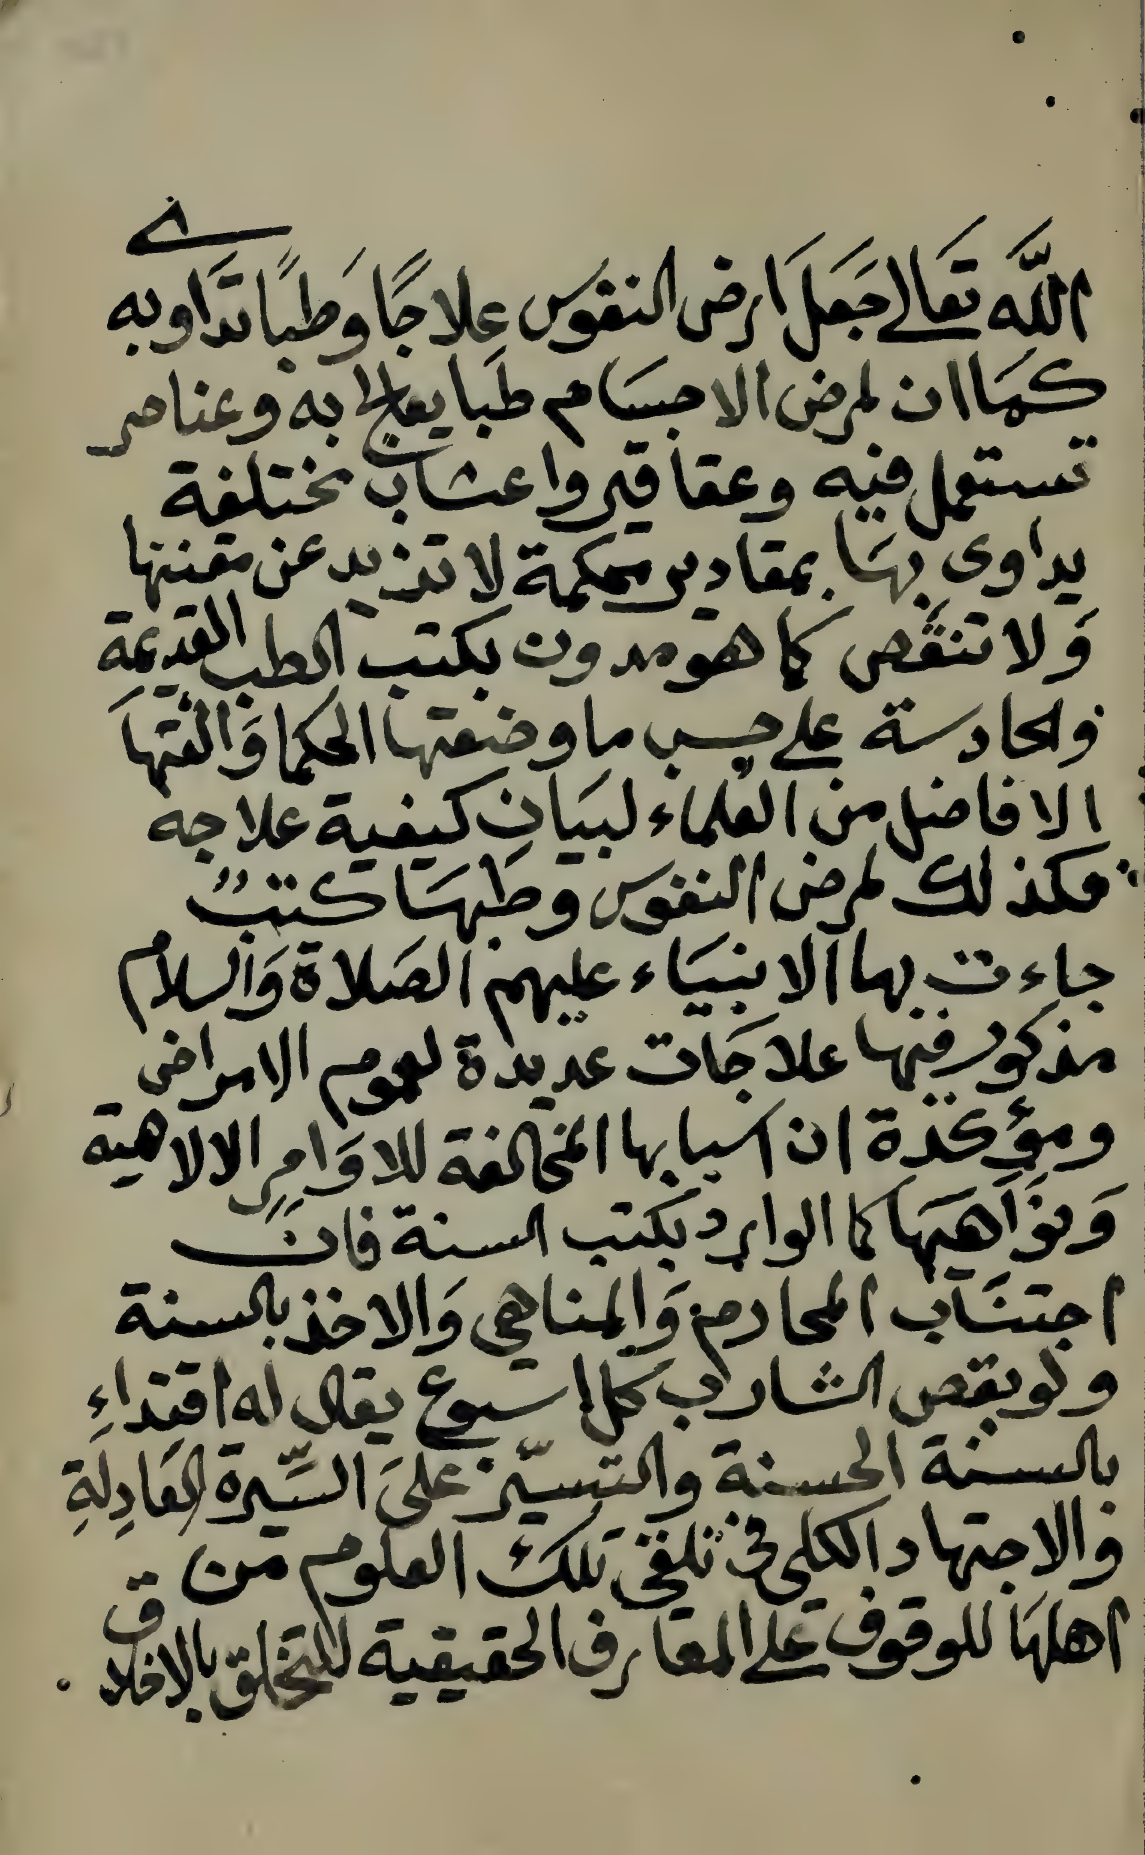 الله تعالى جَعَلَ لمرض النفوس علاجًا وَطبًا تداويه
كمَا ان لمرض الاجسَام طبا يعالج به وعناصر
تستعمل فيه وعقاقير واعشاب مختلفة
يداوى بهَا بمقادير محكمة لا تزيد عن مقننها
وَلا تنقص كما هو مدون بكتب الطب القديمة
والحادسة على حسب ما وضعتها الحكما وَالفتها
الافاضل من العُلماء لبيَان كيفية علاجه
فكذلك لمرض النفوس وطبهَا كتبٌ
جاءت بها الانبيَاء عليهم الصَلاة وَالسلام
مذكور فيها علاجَات عديدة لعموم الامراض
ومؤكدة ان اسبابها المخالفة للاوَامِرِ الالاهية
وَنوَاهيَهَا كما الوارد بكتب السنة فانَ
اجتنَاب المحارم وَالمناهي وَالاخذ بالسنة
ولو بقص الشارب كل اسبوع يقال له اقتداءِ
بالسنة الحسنة والتسيّر علىَ السِّيرة العَادِلَةِ
والاجتهاد الكلي في تلقى تلك العلوم من
اهلهَا للوقوف على المعَارف الحقيقية للتخلق بالاخلاق